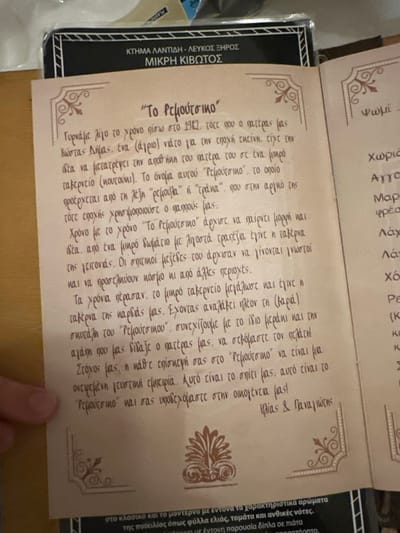 ΚΤΗΜΑ ΛΑΝΤΙΔΗ - ΛΕΥΚΟΣ ΞΗΡΟΣ
ΜΙΚΡΗ ΚΙΒΩΤΟΣ
"Το Ρεμούτσικο"
Γυρνάμε λίγο το χρόνο πίσω στο 1982, τότε που ο πατέρας μας
Κώστας Δήμας, ένα (άγριο) νιάτο για την εποχή εκείνη, είχε την
ιδέα να μετατρέψει την αποθήκη του πατέρα του σε ένα μικρό
ταβερνείο (κουτούκι). Το όνομα αυτού "Ρεμούτσικο", το οποίο
προέρχεται από τη λέξη "ρεμούτσα" ή "τράκα", που στην αργκό της
τότε εποχής χρησιμοποιούσε ο παππούς μας.
Χρόνο με το χρόνο "Το Ρεμούτσικο" άρχισε να παίρνει μορφή και
ιδέα, από ένα μικρό δωμάτιο με λιγοστά τραπέζια έγινε η ταβέρνα
της γειτονιάς. Οι σπιτικοί μεζέδες του άρχισαν να γίνονται γνωστοί
και να προσελκύουν κόσμο κι από άλλες περιοχές.
Τα χρόνια πέρασαν, το μικρό ταβερνείο μεγάλωσε και έγινε η
ταβέρνα της καρδιάς μας. Έχοντας αναλάβει πλέον τη (βαριά)
σκυτάλη του "Ρεμούτσικου", συνεχίζουμε με το ίδιο μεράκι και την
αγάπη που μας δίδαξε ο πατέρας μας, να σεβόμαστε τον πελάτη!
Στόχος μας, η κάθε επίσκεψή σας στο "Ρεμούτσικο" να είναι μια
ολική γευστική εμπειρία. Αυτό είναι το σπίτι μας, αυτό είναι το
"Ρεμούτσικο" και σας υποδεχόμαστε στην οικογένεια μας!
Ηλίας & Παναγιώτης
Ψωμί
Χωριά
Αγγο
Μαρ
φρέσ
Λάχ
Λάχ
Χό
Ρε
(Κ
κ
κ
στο κλασικό και το μοντέρνο με έντονα τα χαρακτηριστικά αρώματα
της ποικιλίας όπως φύλλα ελιάς, τομάτα και ανθικές νότες.
με έντονη παρουσία δίπλα σε πιάτα